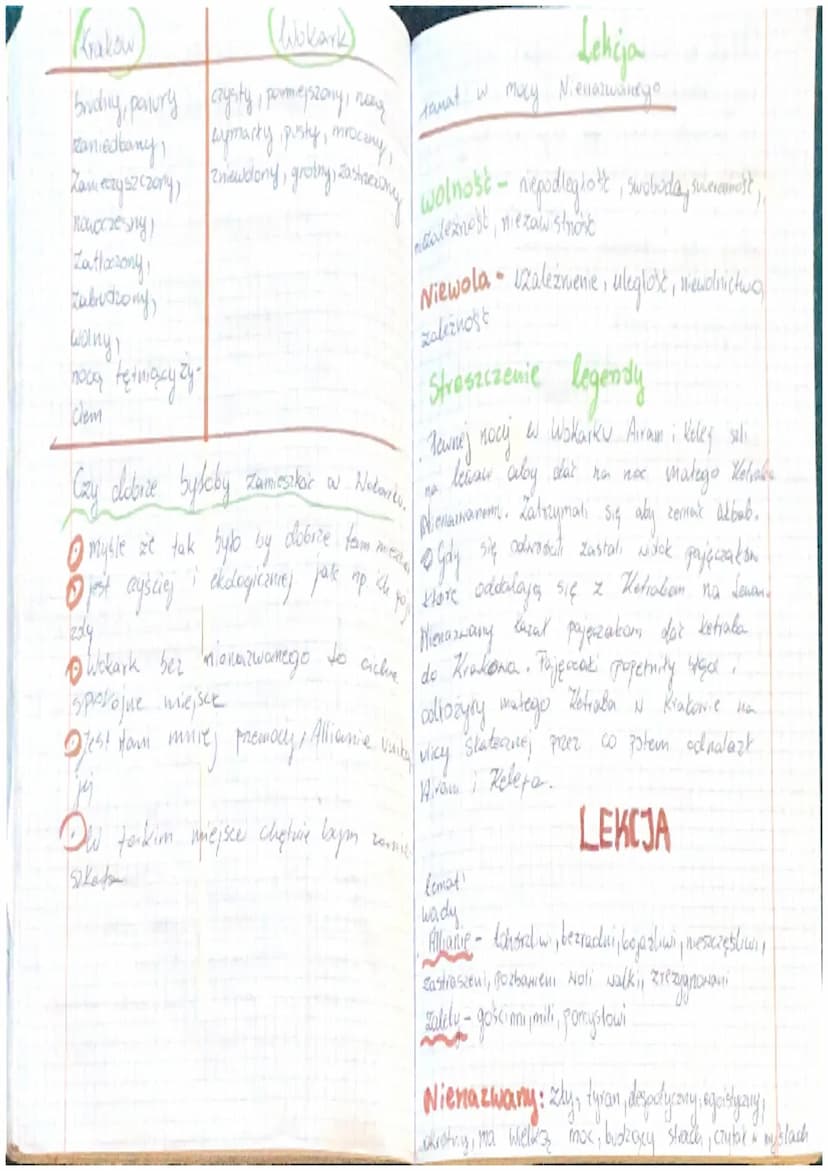 Kraków
Wokark
brudny, ponury
zaniedbany,
Zanieczyszczony,
nowoczesny,
Zatłoczony,
zabrudzony,
wolny,
nocą tętniący ży-
ciem
czysty, pomniejszony, nocą
wymarły, pusty, mroczny,
zniewolony, groźny, zastraszony
Czy dobrze byłoby zamieszkać w Wokarku.
myśle że tak było by dobrze tam
jest czyściej i ekologiczniej jak np ich poj
zdy
Wokark bez nienazwanego to ciche
spokojne miejsce
Jest tam mniej przemocy, Allianie
jej
W takim miejsce chętnie bym zamie-
szkała
Lekcja
temat w mocy Nienazwanego
wolność - niepodległość, swoboda, suwerenność,
niezależność, niezawisłość
Niewola - uzależnienie, uległość, niewolnictwo,
zależność
Streszczenie legendy
Pewnej nocy w Wokarku Airam i Kelef szli
na aby dać na noc małego Ketraba
Nienazwanemu. Zatrzymali się aby zerwać
Gdy się odwrócili zastali widok pajęczaków
które oddalają się z Ketrabem na
Nienazwany kazał pajęczakom dać ketraba
do Krakowa. Pajęczaki popełniły błąd i
odłożyły małego Ketraba w Krakowie na
ulicy Skałecznej przez co potem odnalazł
Airam i Kelefa.
LEKCJA
temat:
wady
Allianie - tchórzliwi, bezradni, bojaźliwi, nieszczęśliwi,
zastraszeni, pozbawieni woli walki, zrezygnowani
zalety - gościnni, mili, pomysłowi
Nienazwany: zły, tyran, despotyczny, egoistyczny,
okrutny, ma wielką moc, budzący strach, czytał w myślach